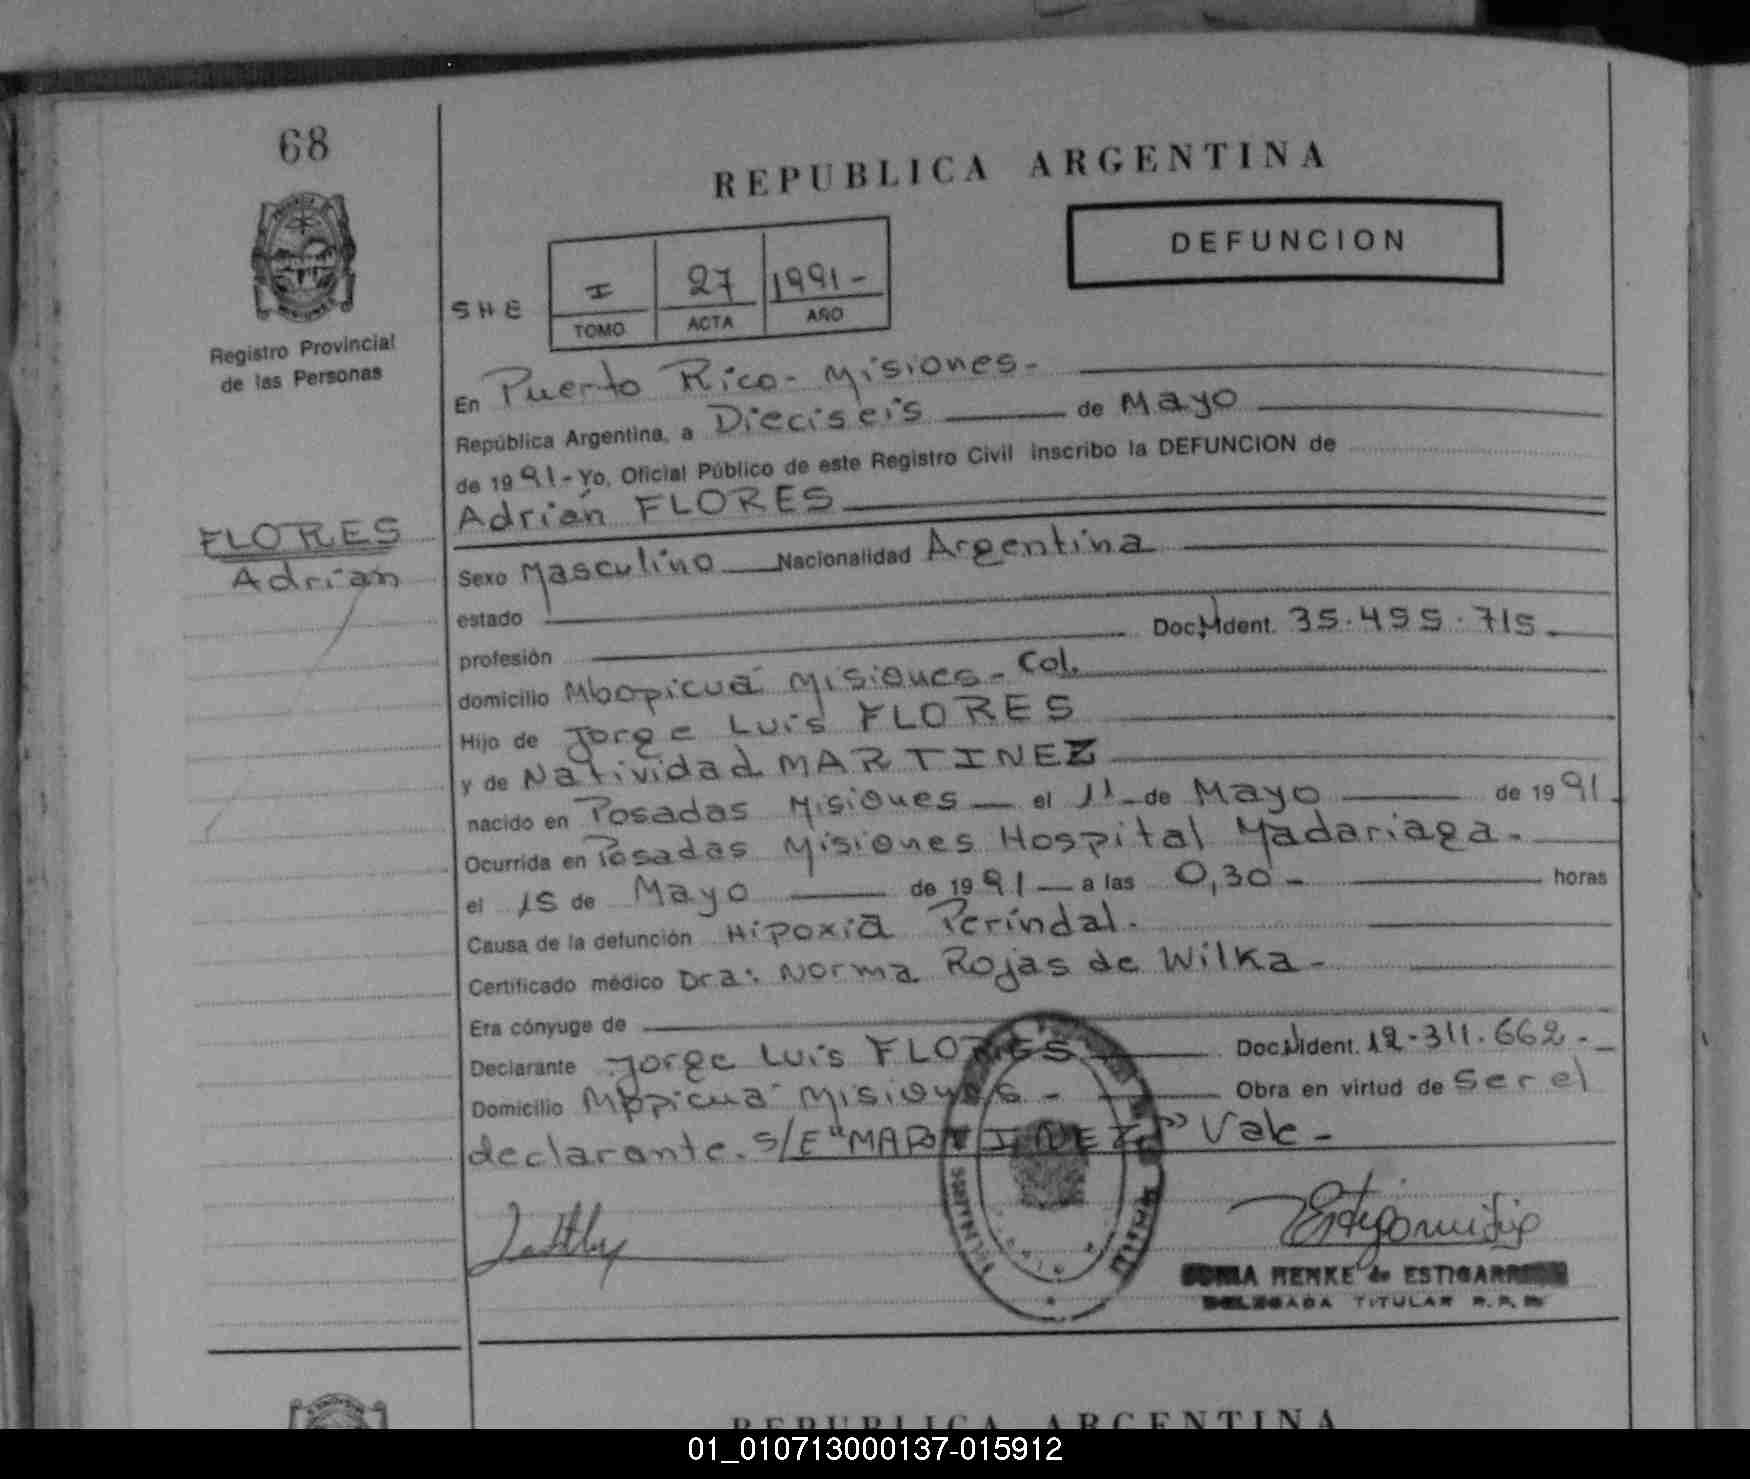 68
REPUBLICA ARGENTINA
DEFUNCION
Registro Provincial
de las Personas
SHE
I 27 1991-
TOMO ACTA AÑO
En Puerto Rico - Misiones -
República Argentina, a Dieciseis de Mayo
de 1991 - Yo, Oficial Público de este Registro Civil inscribo la DEFUNCION de
Adrián FLORES
FLORES
Adrián
Sexo Masculino Nacionalidad Argentina
estado
profesión Doc. Ident. 35.455.715
domicilio Mbopicuá Misiones - Col.
Hijo de Jorge Luis FLORES
y de Natividad MARTINEZ
nacido en Posadas Misiones el 11 de Mayo de 1991
Ocurrida en Posadas Misiones Hospital Madariaga -
el 15 de Mayo de 1991 a las 0,30 - horas
Causa de la defunción Hipoxia Perindal.
Certificado médico Dra: Norma Rojas de Wilka -
Era cónyuge de
Declarante Jorge Luis FLORES Doc. N Ident. 12-311.662 -
Domicilio Mbpicuá Misiones - Obra en virtud de ser el
declarante. S/E "MARTINEZ" Vale -
MENKE de
DELEGADA TITULAR R.P.P.
REPUBLICA ARGENTINA
01_010713000137-015912